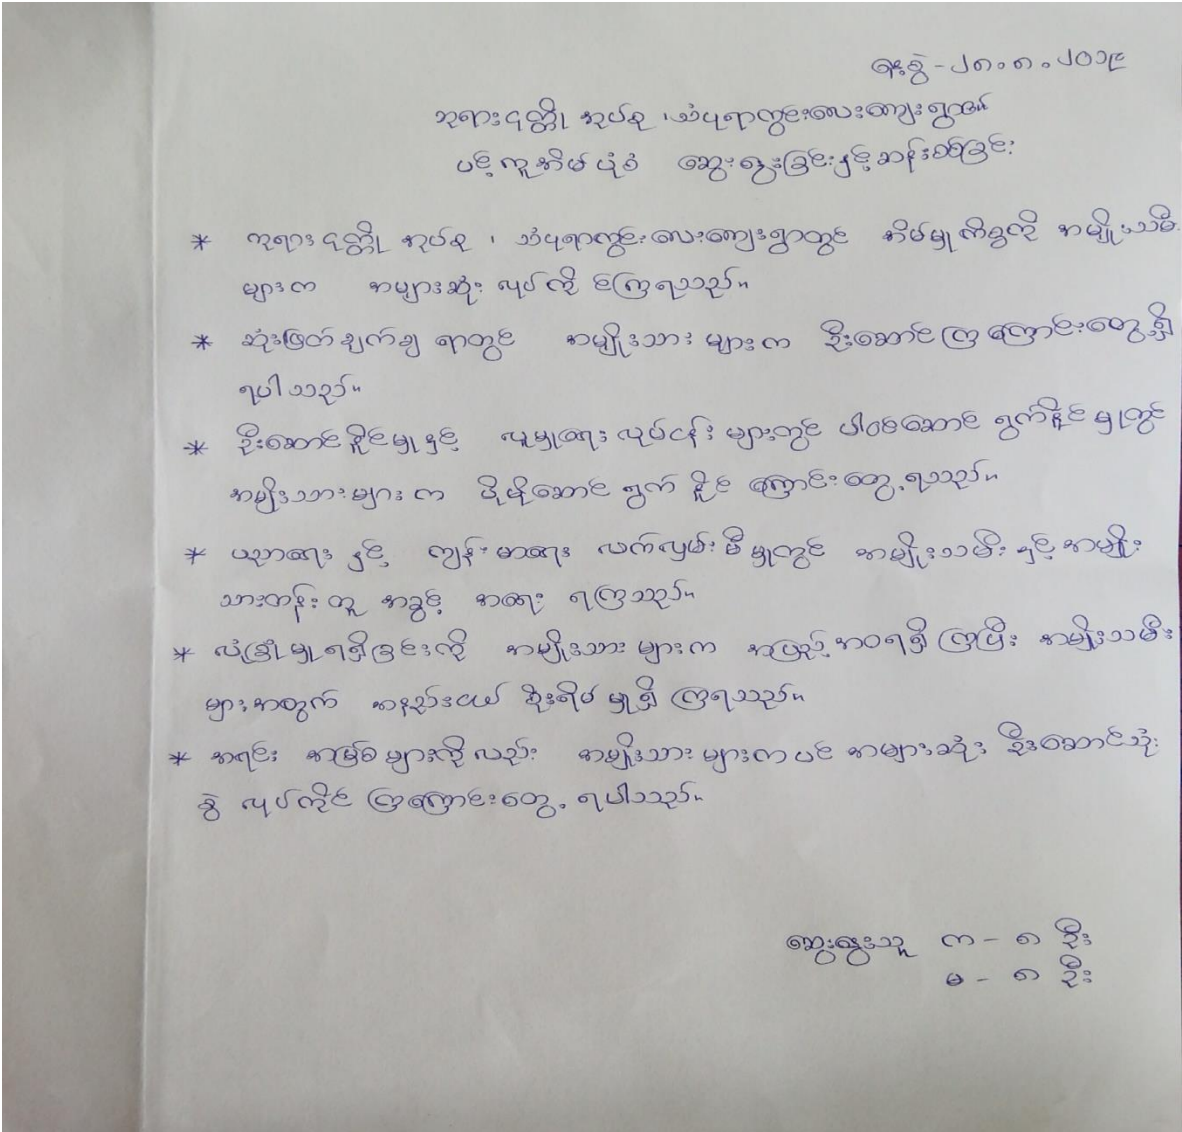 ရေးစွဲ - ၂၈.၈.၂၀၁၉
ဘုရားငုတ္တို အုပ်စု ၊ သံပုရာကွင်းလေးကျေးရွာ၏
ပင့်ကူအိမ်ပုံစံ ဆွေးနွေးခြင်းနှင့်ဆန်းစစ်ခြင်း
* ဘုရားငုတ္တို အုပ်စု ၊ သံပုရာကွင်းလေးကျေးရွာတွင် အိမ်မှုကိစ္စကို အမျိုးသမီး
များက အများဆုံး လုပ်ကိုင်ကြရသည်။
* ဆုံးဖြတ်ချက်ချ ရာတွင် အမျိုးသား များက ဦးဆောင်ကြကြောင်းတွေ့ရှိ
ရပါသည်။
* ဦးဆောင်နိုင်မှုနှင့် လူမှုရေး လုပ်ငန်း များတွင် ပါဝင်ဆောင် ရွက်နိုင်မှုတွင်
အမျိုးသားများ က ပိုမိုဆောင် ရွက် နိုင် ကြောင်းတွေ့ရသည်။
* ပညာရေး နှင့် ကျန်းမာရေး လက်လှမ်းမီမှုတွင် အမျိုးသမီး နှင့် အမျိုး
သားတန်းတူ အခွင့် အရေး ရကြသည်။
* လုံခြုံမှုရရှိခြင်းကို အမျိုးသား များက အပြည့်အဝရရှိကြပြီး အမျိုးသမီး
များအတွက် အနည်းငယ် စိုးရိမ်မှုရှိ ကြရသည်။
* အရင်း အမြစ်များကိုလည်း အမျိုးသား များကပင် အများဆုံး ဦးဆောင်သုံး
စွဲ လုပ်ကိုင် ကြကြောင်းတွေ့ ရပါသည်။
ဆွေးနွေးသူ က - ၈ ဦး
မ - ၈ ဦး